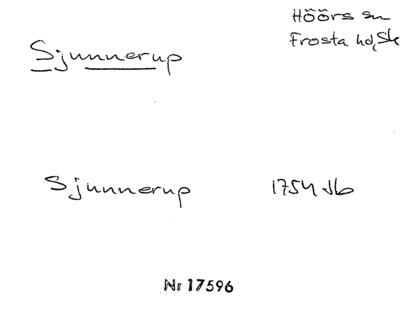 Höörs sn
Frosta hd, Sk
Sjunnerup
Sjunnerup 1754 Jb
Nr 17596